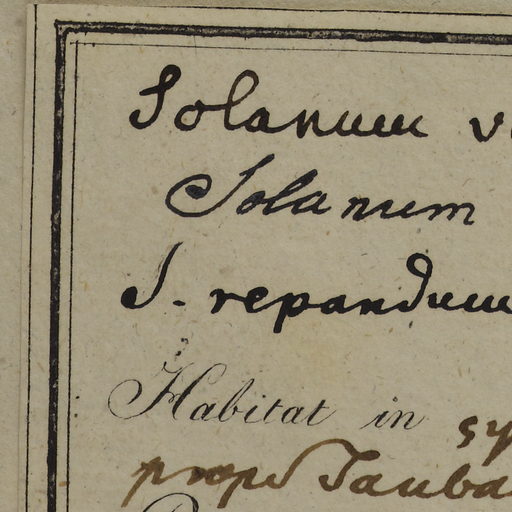 Solanum
Solanum
S. repandum
Habitat in sy
prope Tauba